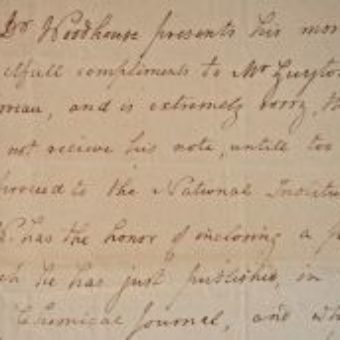 Dr Woodhouse presents his mos
ctfull compliments to Mr Guyton
orveau, and is extremely sorry, th
not recieve his note, untill too
proceed to the National Institu
W. has the honor of inclosing a p
ch he has just published, in
Chemical Journal, and wh